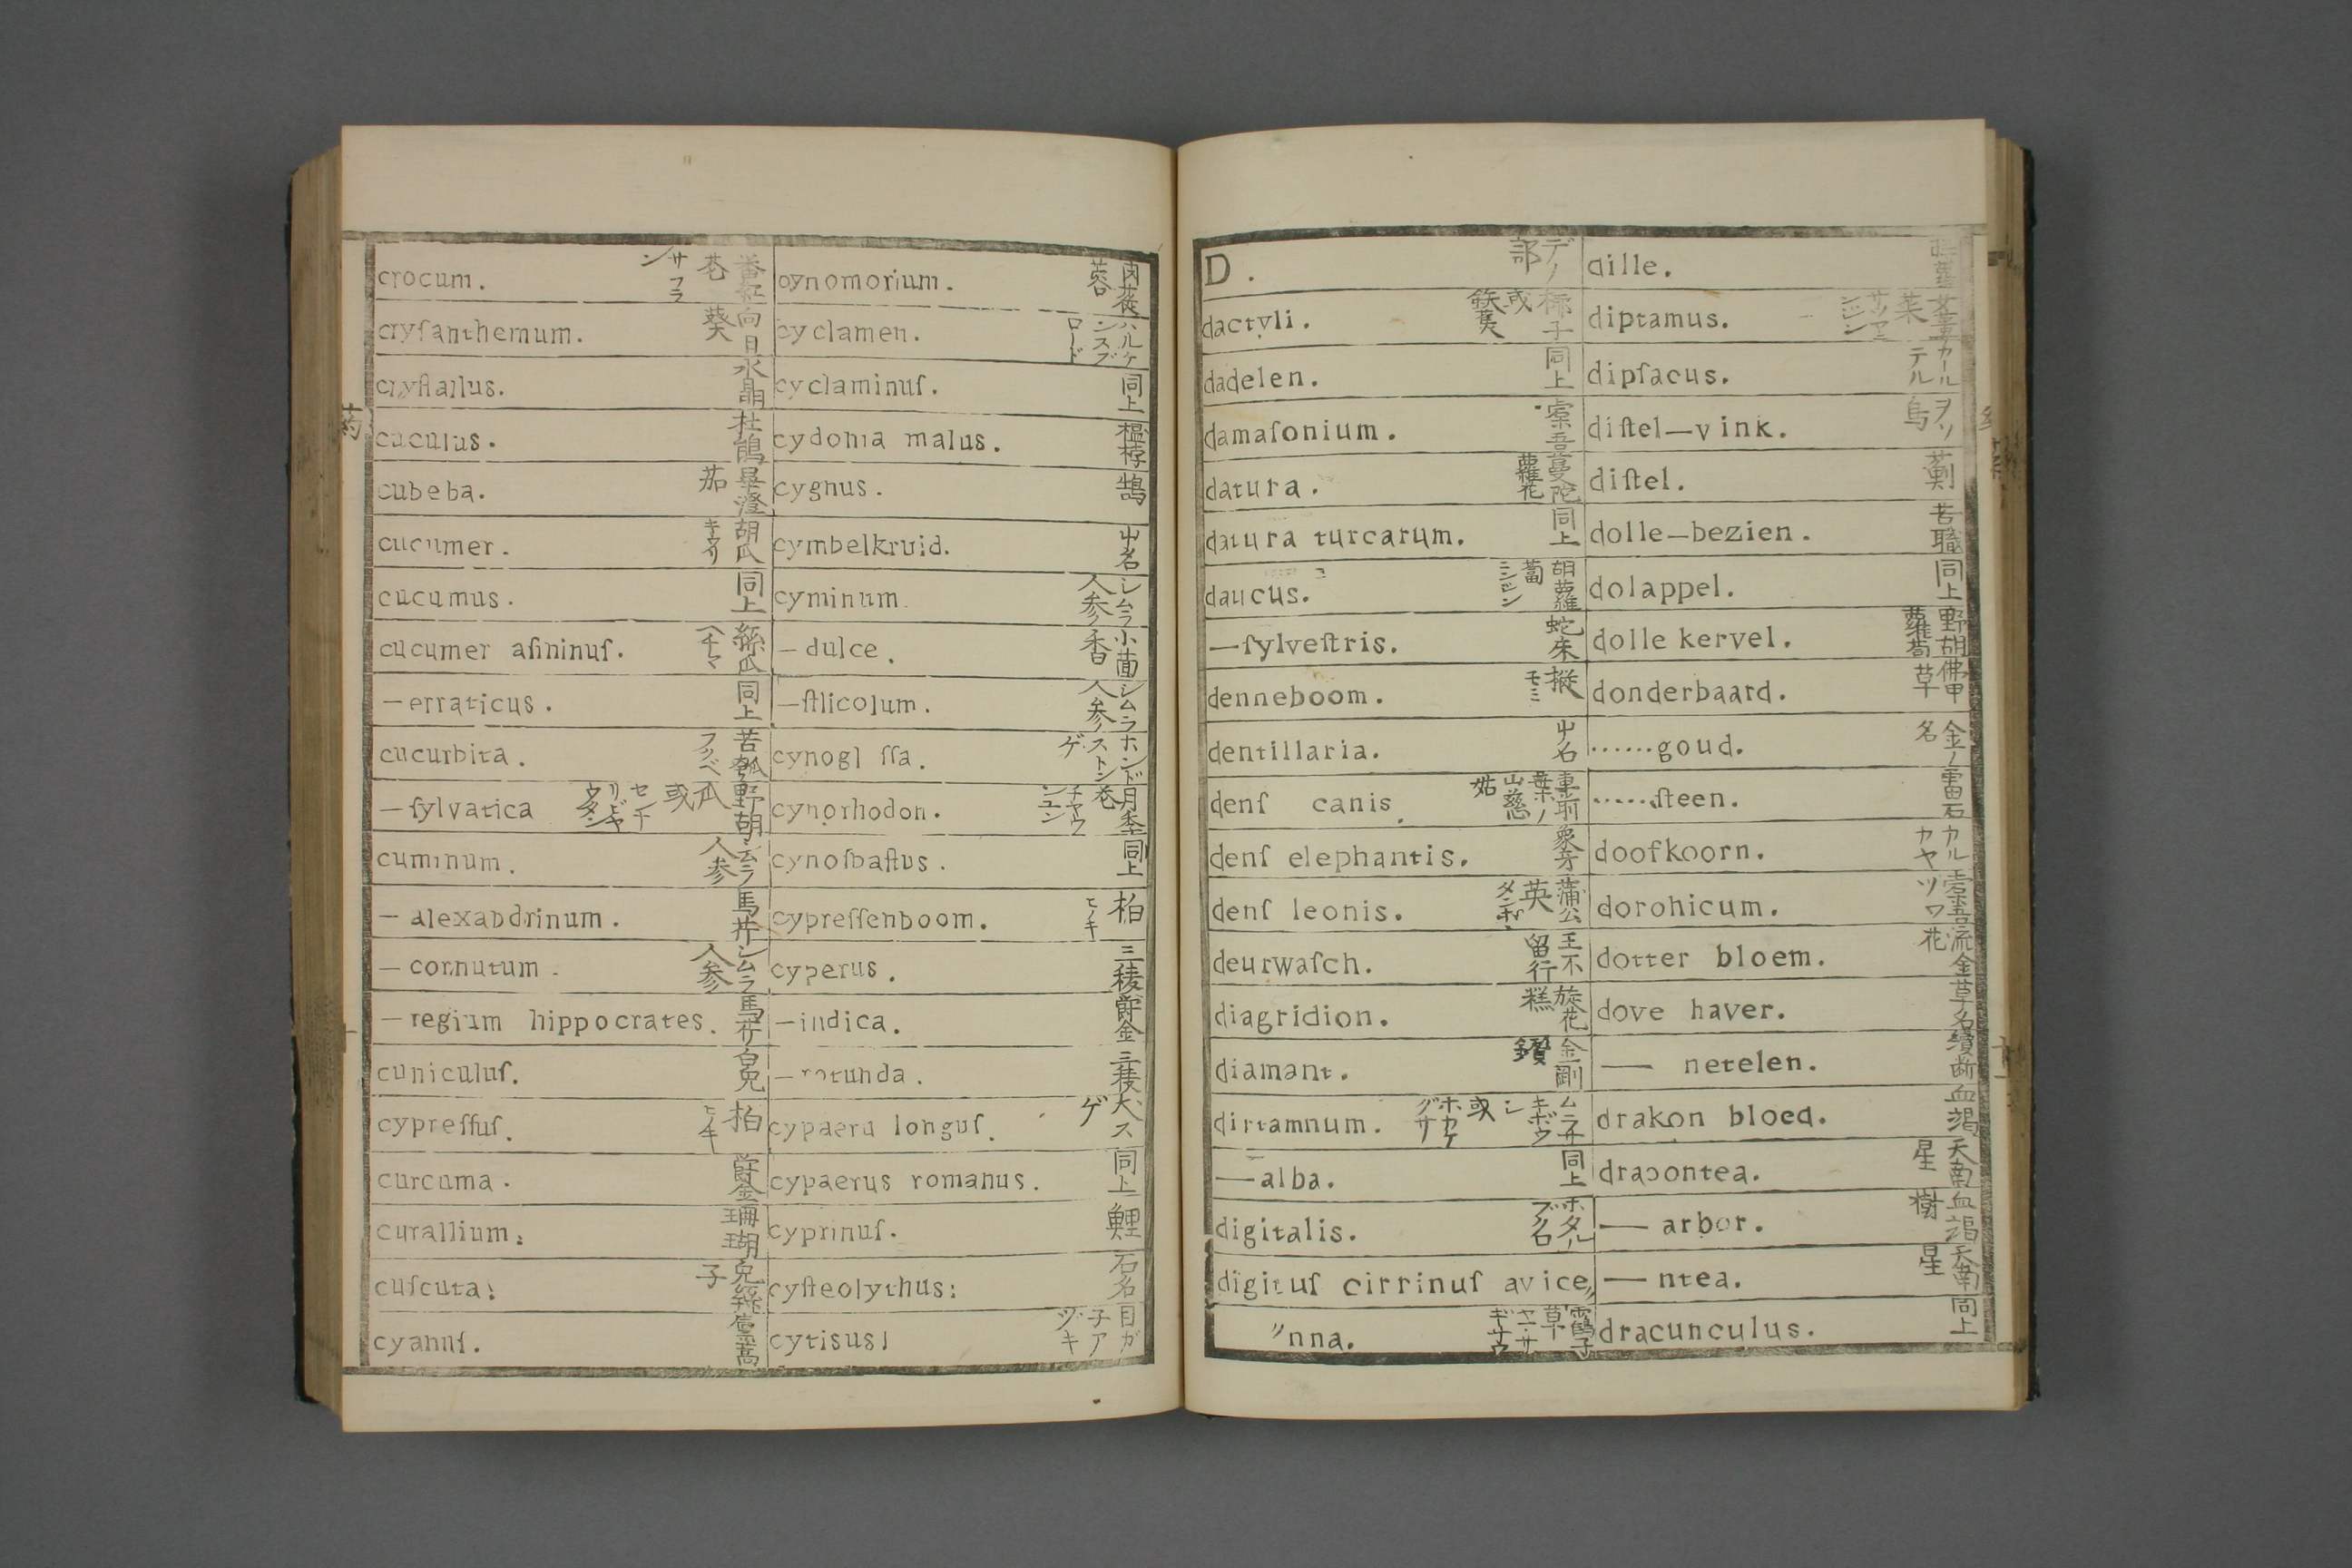 crocum. 番紅花 サフラン
cryſanthemum. 向日葵
cryſtallus. 水晶
cuculus. 杜鵑
cubeba. 畢澄茄
cucumer. 胡瓜 キウリ
cucumus. 同上
cucumer aſininuſ. 絲瓜 ヘチマ
—erraticus. 同上
cucurbita. 苦瓠 フクベ
—ſylvatica 野胡瓜 或
cuminum. シムラ人参
—alexabdrinum. 馬芹
—cornutum. シムラ人参
—regium hippocrates. 馬芹
cuniculuſ. 白兎
cypreſſuſ. 柏 ヒノキ
curcuma. 欝金
curallium: 珊瑚
cuſcuta: 兎絲子
cyannſ.
oynomorium. 肉蓯蓉
cyclamen. ハルケンスブロード
cyclaminuſ. 同上
cydonia malus. 榲桲
cygnus. 鵠
cymbelkruid. 屮名
cyminum. シムラ人参
—dulce. 小茴香
—ſtlicolum. シムラ人参
cynogl ſſa. ホンドストンゲ
cynorhodon. 月季花 チヤウシユン
cynoſbaſtus. 同上
cypreſſenboom. 柏 ヒノキ
cyperus. 三稜
—indica. 欝金
—rotunda. 三稜
cypaeru longuſ. 大スゲ
cypaerus romanus. 同上
cyprinuſ. 鯉
cyſteolythus: 石名
cytisus)
D. デノ部
dactyli. 椰子 或
dadelen. 同上
damaſonium. 槖吾
datura. 蔓陀蘿花
datura turcarum. 同上
daucus. 胡蘿蔔 ニンジン
—ſylveſtris. 蛇床
denneboom. 樅 モミ
dentillaria. 屮名
denſ canis. 車前葉ノ山慈姑
denſ elephantis. 象牙
denſ leonis. 蒲公英 タンポヽ
deurwaſch. 王不留行
diagridion. 旋花
diamant. 金剛鑽
dirtamnum. ムラサキボウシ 或 ホカケグサ
—alba. 同上
digitalis. ホタルブクロ
digituſ cirrinuſ avice〃
〃nna.
dille.
diptamus.
dipſacus. カールテル
diſtel—vink. ヲソ鳥
diſtel. 薊
dolle—bezien. 苦職
dolappel. 同上
dolle kervel. 野胡蘿蔔
donderbaard. 佛甲草
......goud. 金ノ名
......ſteen. 雷石
doofkoorn. カルカヤ
dorohicum. 槖吾 ツワ
dotter bloem. 流金花
dove haver. 草名
— netelen. 續断
drakon bloed. 血竭
dracontea. 天南星
— arbor. 血竭樹
— ntea. 天南星
dracunculus. 同上